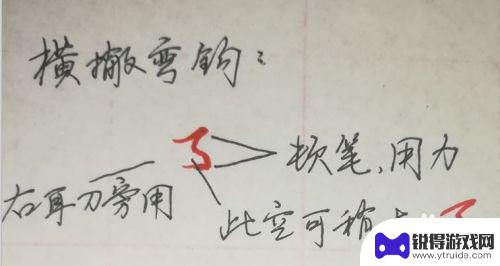 横撇弯钩：
ろ 顿笔、用力
右耳刀旁用
此空可稍大
锐得游戏网
www.ytruida.com